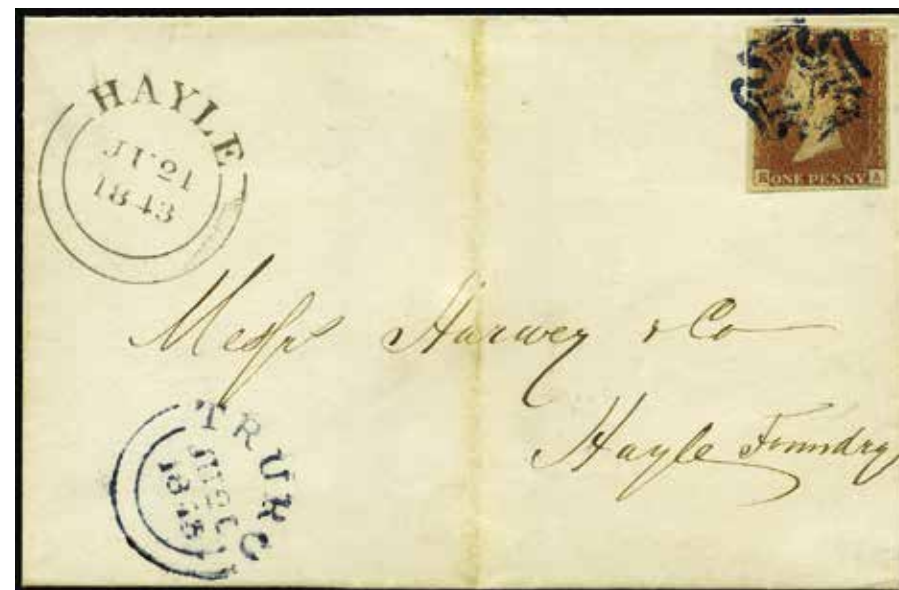 HAYLE
JU 21
1843
R ONE PENNY A
Messrs Harvey & Co
Hayle Foundry
TRURO
1843